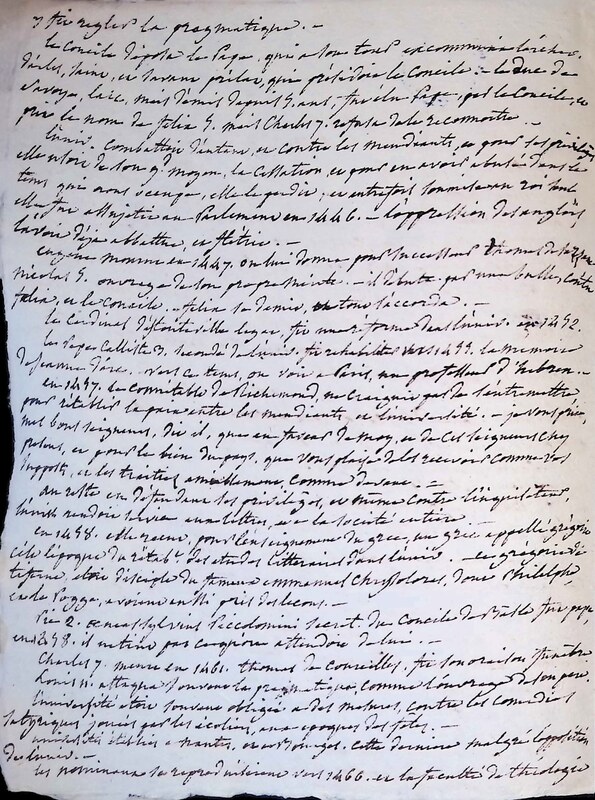 7 fit regler la pragmatique. –
le Concile déposa le Pape, qui a son tour excommunia
d'arles, saint, et savant prélat, qui présidoit le Concile – le duc de
Savoye, laïc, mais démis depuis 5 ans, fut élu Pape, par le Concile, et
prit le nom de felix 5. mais Charles 7. refusa de le reconnoitre. –
l'univ. Combattoit d'autre, et contre les mendiants, et pour ses privilèges
elle usoit de son gd moyen, la Cessation, et pour en avoir abusé dans le
tems que nous, elle le perdit, et soumise au roi seul
elle fut assujettie au Parlement en 1446. – l'oppression des anglois
l'avoit déja abbattue, et flétrie. –
Eugene mourut en 1447. on lui donna pour successeur thomas de
nicolas 5. ouvrage de son propre mérite – il débuta par une bulle, contre
felix, et le Concile. – felix se démit, et tout s'accorda. –
le Cardinal d'Estouteville legat, fit une réforme dans l'univ. en 1452.
les Papes Calliste 3. secondé de l'univ. fit réhabiliter vers 1455. la memoire
de jeanne d'arc. vers ce tems, on voit a Paris, un professeur d'hebreu. –
en 1457. le connétable de Richemond, ne craignit pas de s'entremettre
pour rétablir la paix entre les mendiants, et l'université. – je vous prie,
mes bons seigneurs, dit il, que en faveur de moy, et de ces seigneurs cy
presens, et pour le bien du pays, que vous plaise de les recevoir comme vos
supposts, et les traitter amiablement, comme devant. –
au reste en défendant ses privilèges, et même contre l'inquisition,
l'univ. rendoit service aux lettres, et a la societé entiere. –
en 1458. elle recut, pour l'enseignement du grec, un grec appellé grégoire
c'est l'epoque du rétabt. des etudes litteraires dans l'univ. – ce grégoire de
tiferne, étoit disciple du fameux emmanuel Chrysolores, dont Philelphe
et le Pogge, avoient aussi pris des lecons. –
Pie 2. eneas sylvius Piccolomini secret. du Concile de Basle fut pape
en 1458. il ne tint pas ce qu'on attendoit de lui. –
Charles 7. meurt en 1461. thomas de Courcelles, fit son oraison funèbre
Louis 11. attaqua souvent la pragmatique, comme l'ouvrage de son pere.
l'université étoit souvent obligée a des mesures, contre les comedies
satyriques jouées par les écoliers, aux epoques des fetes. –
universités établies a nantes, et a Bourges. cette derniere malgré l'opposition
de l'univ. –
les nominaux se reproduisirent vers 1466. et la faculté de théologie